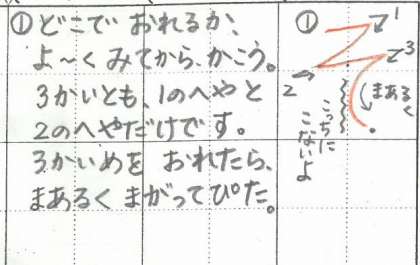 ①どこで おれるか、
よ〜く みてから、かこう。
3かいとも、1のへやと
2のへやだけです。
3かいめを おれたら、
まあるく まがってぴた。
①
1
3
2
まあるく
こっちに
こないよ